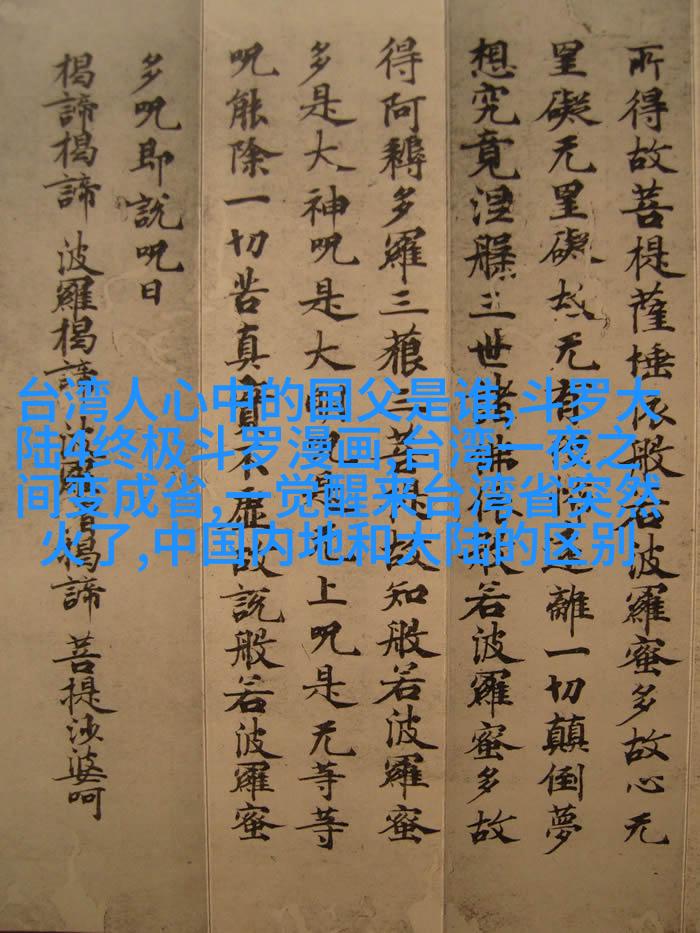 所得故菩提薩埵依般若波羅蜜多故心无
罣礙无罣礙故无有遠離一切顛倒夢
想究竟涅槃三世諸佛依般若波羅蜜多故
得阿耨多羅三藐三菩提故知般若波羅蜜
多是大神呪是大明呪是上呪是无等等
呪能除一切苦真實不虛故說般若波羅蜜
多呪即說呪曰
揭諦揭諦 波羅揭諦 波羅僧揭諦 菩提沙婆呵
台湾人心中的国父是谁,斗罗大
陆4终极斗罗漫画,台湾一夜之
间变成省,一觉醒来台湾省突然
火了,中国内地和大陆的区别